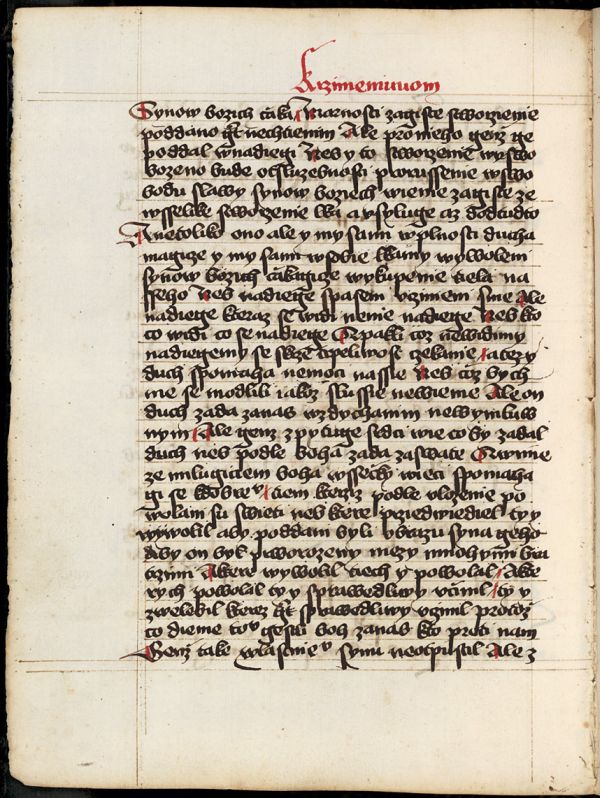 krzimenninom
Synow bozich cžaka Marnosti zagiste stworzienie
poddano gt nechtiemim Ale pro nieho genz ge
poddal w nadiegi Neb y to stworzenie wyswo
bozeno bude ot sluzebnosti porussenie w swo
bodu slawy synow boziech wieme zagiste ze
wsselike stworzenie lka a vsyluge az dodcudto
A netoliko ono ale y my sami w plnosti ducha
magicze y my sami w sobie lkamy wywolem
synow bozich cžekagicze wykupenie tiela na
sseho Neb nadiege spasem vcžinieni sme Ale
nadiege keraz se widi nenie nadiege Neb kto
to widi to se nadiege A pakli coz newidimy
nadiegemy se skrze trpeliwost czekanie a tez y
duch spomaha nemoci nassie Neb coz bych
me se modlili iakoz slussie newieme Ale on
duch zada zanas wzdychanim newymluw
nym Ale genz zpytuge srdci wie co by zadal
duch neb podle boha zada za swate A wime
ze milugiciem boha wssecky wieci spomaha
gi se k dobre° tiem kteriz podle vlozenie po
wolani su swieti neb ktere przedwiediel ty y
zwywolil aby poddani byli obrazu syna geho
Aby on byl prworozeny mezy mnohymi bra
trzimi A kere wywolil tiech y powolal Ake
rych powolal ty y sprawedliwy vcinil ty y
zwelebil kerez gt sprawedliwy vcinil protoz
co dieme to° gestli boh zanas kto proti nam
Genz take wlastnie° synu neotpustil Ale z